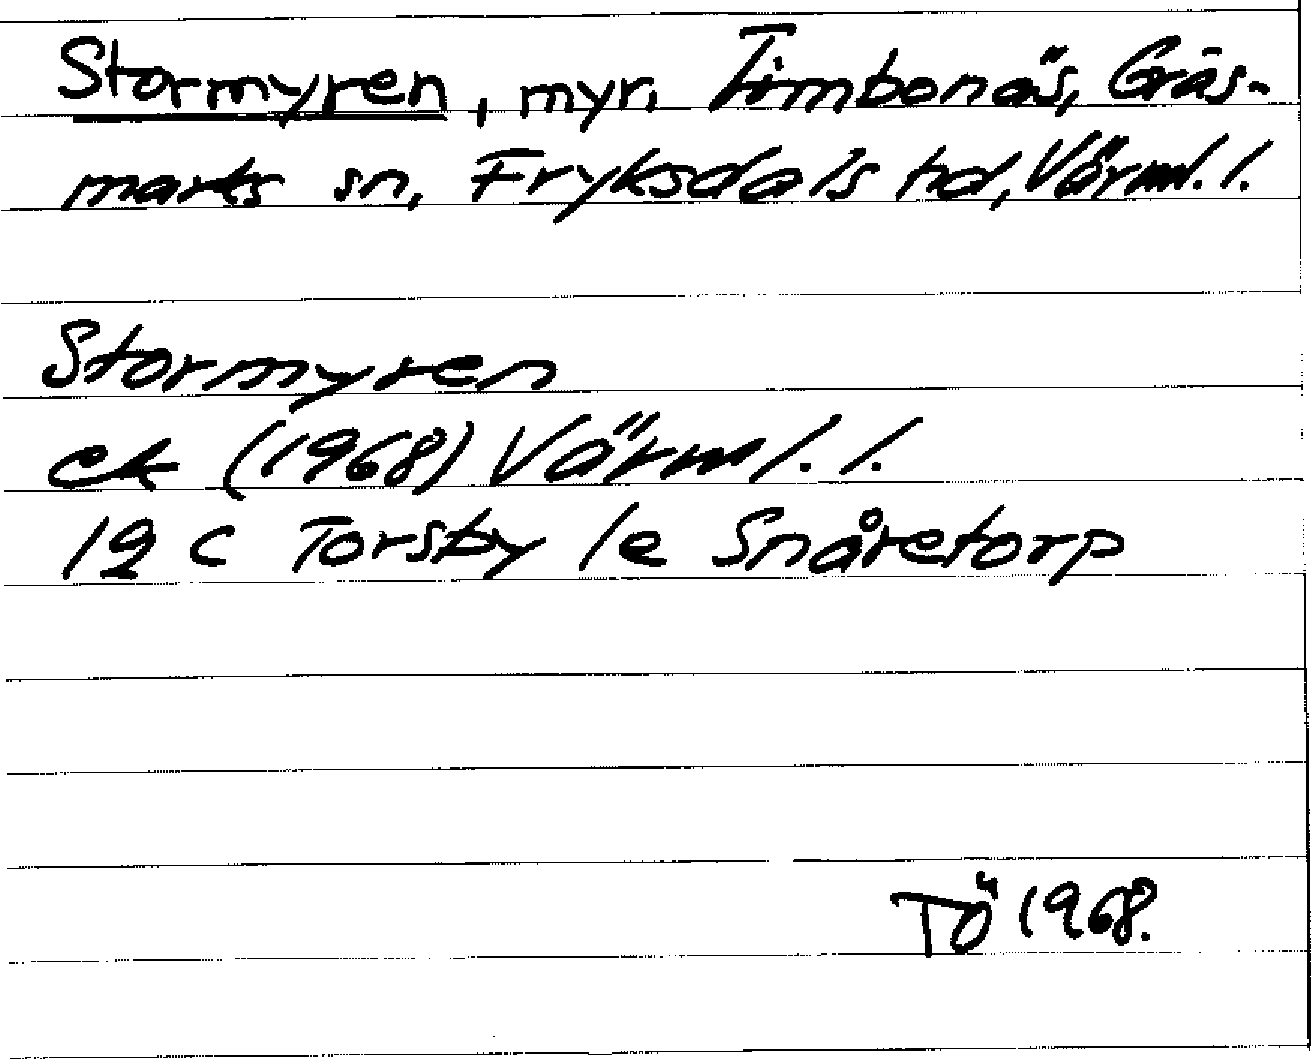 Stormyren, myr, Timbonäs, Gräs-
marks sn, Fryksdals hd, Värml. l.
Stormyren
ek (1968) Värml. l.
12 C Torsby 1e Snåretorp
TÖ 1968.